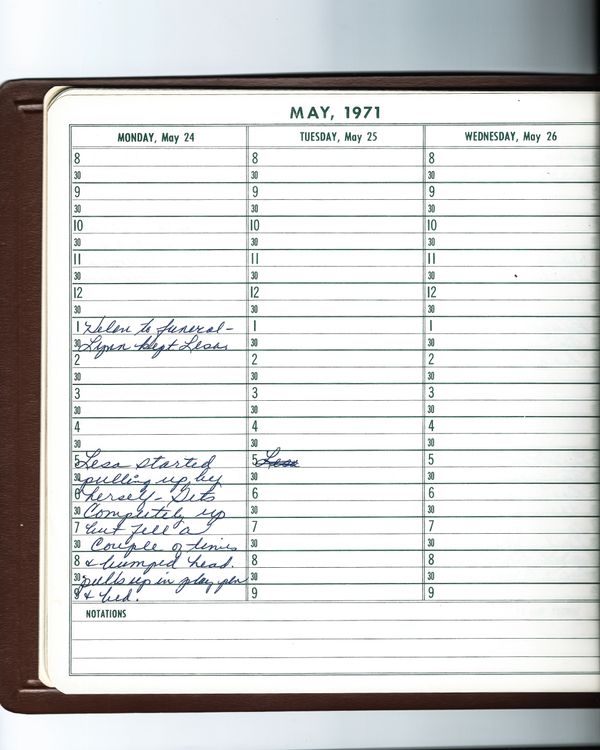 MAY, 1971
MONDAY, May 24
8
30
9
30
10
30
11
30
12
30
1 Helen to funeral-
30 Lynn kept Lesa
2
30
3
30
4
30
5 Lesa started
30 pulling up by
6 herself- Gets
30 Completely up
7 but fell a
30 Couple of times
8 & bumped head.
30 pulls up in play pen
9 & bed.
TUESDAY, May 25
8
30
9
30
10
30
11
30
12
30
1
30
2
30
3
30
4
30
5 Lesa
30
6
30
7
30
8
30
9
WEDNESDAY, May 26
8
30
9
30
10
30
11
30
12
30
1
30
2
30
3
30
4
30
5
30
6
30
7
30
8
30
9
NOTATIONS